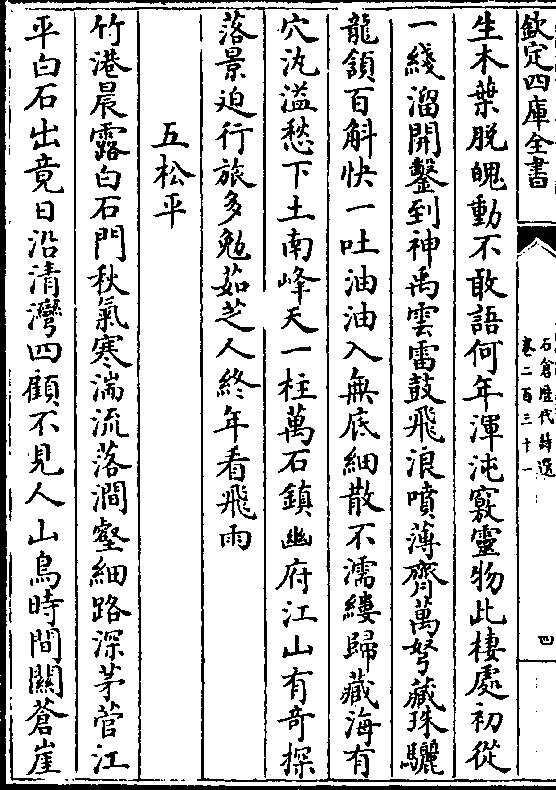 欽定四庫全書
石倉歴代詩選
卷二百三十一
四
生木葉脱魄動不敢語何年渾沌竅靈物此棲處初從
一綫溜開鑿到神禹雲雷鼓飛浪噴薄齊萬弩藏珠驪
龍頷百斛快一吐油油入無底細散不濡縷歸藏海有
穴氿溢愁下土南峰天一柱萬石鎮幽府江山有奇探
落景迫行旅多勉茹芝人終年看飛雨
五松平
竹港晨露白石門秋氣寒湍流落澗壑細路深茅菅江
平白石出竟日沿清灣四顧不見人山鳥時間關蒼崖